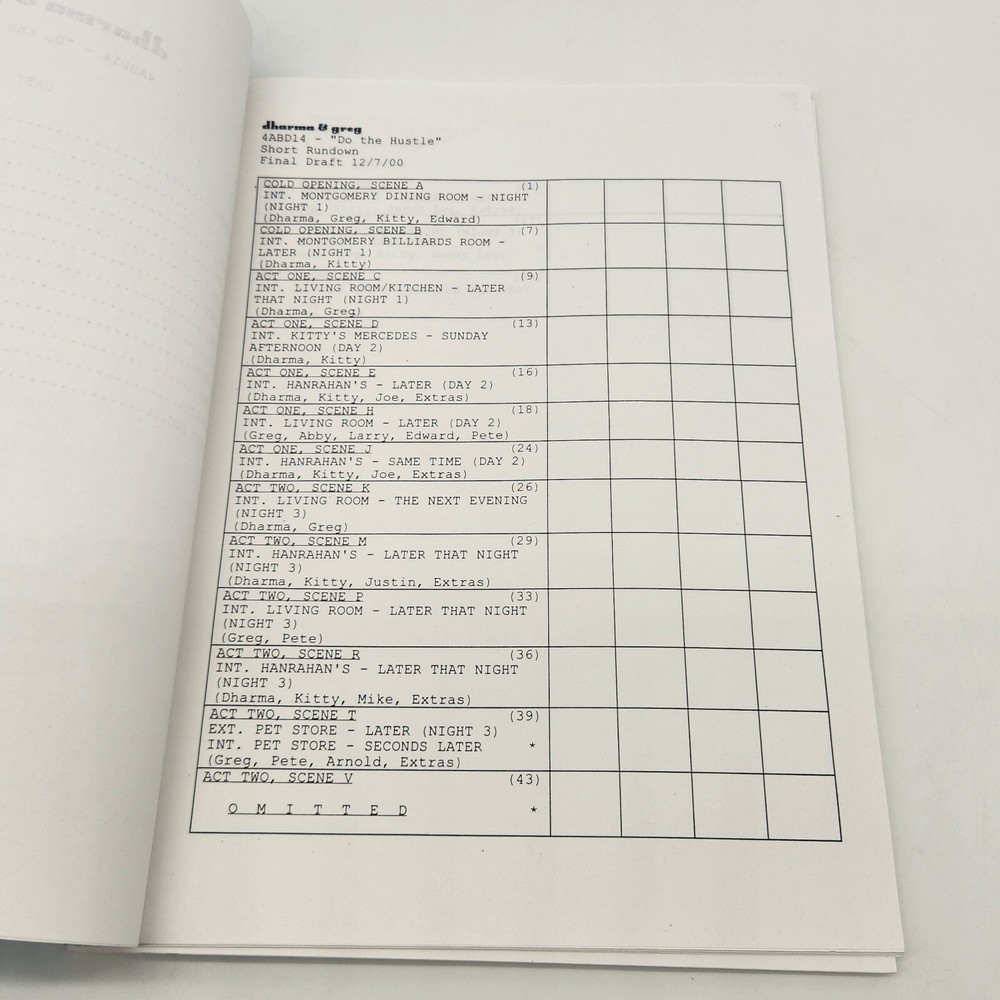 dharma & greg
4ABD14 - "Do the Hustle"
Short Rundown
Final Draft 12/7/00
COLD OPENING, SCENE A (1)
INT. MONTGOMERY DINING ROOM - NIGHT
(NIGHT 1)
(Dharma, Greg, Kitty, Edward)
COLD OPENING, SCENE B (7)
INT. MONTGOMERY BILLIARDS ROOM -
LATER (NIGHT 1)
(Dharma, Kitty)
ACT ONE, SCENE C (9)
INT. LIVING ROOM/KITCHEN - LATER
THAT NIGHT (NIGHT 1)
(Dharma, Greg)
ACT ONE, SCENE D (13)
INT. KITTY'S MERCEDES - SUNDAY
AFTERNOON (DAY 2)
(Dharma, Kitty)
ACT ONE, SCENE E (16)
INT. HANRAHAN'S - LATER (DAY 2)
(Dharma, Kitty, Joe, Extras)
ACT ONE, SCENE H (18)
INT. LIVING ROOM - LATER (DAY 2)
(Greg, Abby, Larry, Edward, Pete)
ACT ONE, SCENE J (24)
INT. HANRAHAN'S - SAME TIME (DAY 2)
(Dharma, Kitty, Joe, Extras)
ACT TWO, SCENE K (26)
INT. LIVING ROOM - THE NEXT EVENING
(NIGHT 3)
(Dharma, Greg)
ACT TWO, SCENE M (29)
INT. HANRAHAN'S - LATER THAT NIGHT
(NIGHT 3)
(Dharma, Kitty, Justin, Extras)
ACT TWO, SCENE P (33)
INT. LIVING ROOM - LATER THAT NIGHT
(NIGHT 3)
(Greg, Pete)
ACT TWO, SCENE R (36)
INT. HANRAHAN'S - LATER THAT NIGHT
(NIGHT 3)
(Dharma, Kitty, Mike, Extras)
ACT TWO, SCENE T (39)
EXT. PET STORE - LATER (NIGHT 3)
INT. PET STORE - SECONDS LATER *
(Greg, Pete, Arnold, Extras)
ACT TWO, SCENE V (43)
O M I T T E D *